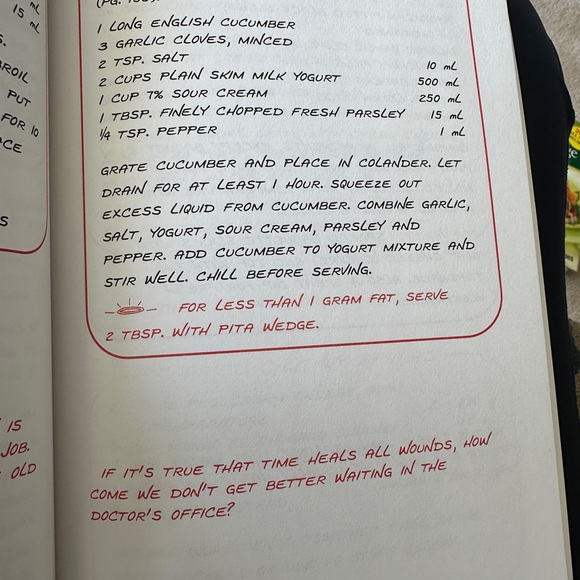 mL
15 mL
S.
BROIL
PUT
FOR 10
CE
S
IS
JOB.
OLD
(PG.
1 LONG ENGLISH CUCUMBER
3 GARLIC CLOVES, MINCED
2 TSP. SALT 10 mL
2 CUPS PLAIN SKIM MILK YOGURT 500 mL
1 CUP 7% SOUR CREAM 250 mL
1 TBSP. FINELY CHOPPED FRESH PARSLEY 15 mL
1/4 TSP. PEPPER 1 mL
GRATE CUCUMBER AND PLACE IN COLANDER. LET
DRAIN FOR AT LEAST 1 HOUR. SQUEEZE OUT
EXCESS LIQUID FROM CUCUMBER. COMBINE GARLIC,
SALT, YOGURT, SOUR CREAM, PARSLEY AND
PEPPER. ADD CUCUMBER TO YOGURT MIXTURE AND
STIR WELL. CHILL BEFORE SERVING.
FOR LESS THAN 1 GRAM FAT, SERVE
2 TBSP. WITH PITA WEDGE.
IF IT'S TRUE THAT TIME HEALS ALL WOUNDS, HOW
COME WE DON'T GET BETTER WAITING IN THE
DOCTOR'S OFFICE?